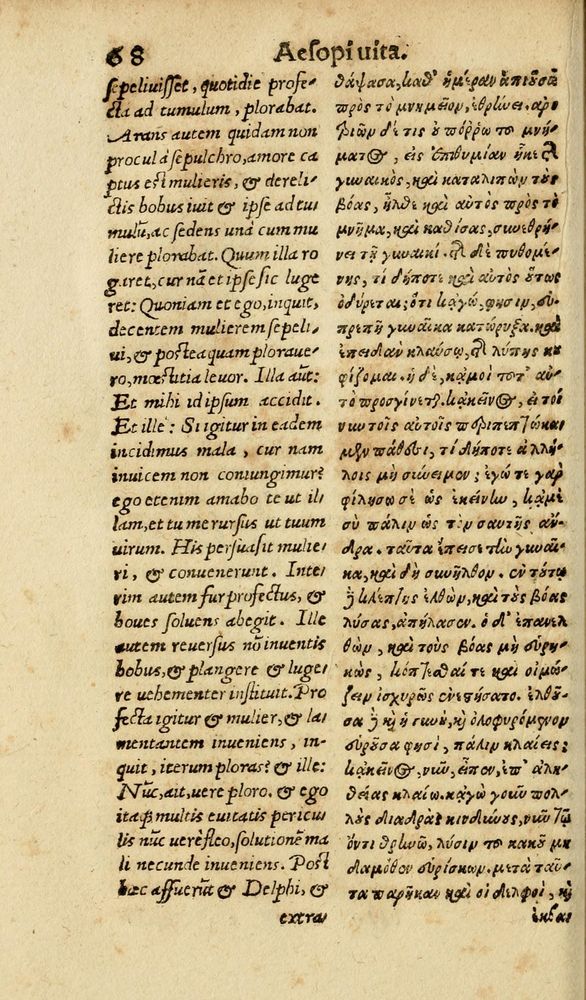 68 Aesopi vita.
sepelivisset, quotidie profe-
cta ad tumulum, plorabat.
Arans autem quidam non
procul à sepulchro, amore ca
ptus est mulieris, & dereli-
ctis bobus ivit & ipse ad tu
mulū, ac sedens unà cum mu
liere plorabat. Quum illa ro
garet, cur nā et ipse sic luge
ret: Quoniam et ego, inquit,
decentem mulierem sepeli-
ui, & postea quam plorave-
ro, mœstitia levor. Illa aūt:
Et mihi id ipsum accidit.
Et ille: Si igitur in eadem
incidimus mala, cur nam
invicem non coniungimur?
ego etenim amabo te ut il-
lam, et tu me rursus ut tuum
virum. His persuasit mulie-
ri, & convenerunt. Inte-
rim autem fur profectus, &
boves solvens abegit. Ille
autem reversus nō inventis
bobus, & plangere & luge-
re vehementer instituit. Pro
fecta igitur & mulier, & la
mentantem inveniens, in-
quit, iterum ploras? & ille:
Nūc, ait, vere ploro. & ego
itaqꝫ multis evitatis pericu
lis nūc verè fleo, solutionē ma
li necunde inveniens. Post
hæc affuerūt & Delphi, &
extra
θάψασα, καθ' ἡμέραν ἀπιοῦσα
πρὸς τὸ μνημεῖον, ἐθρήνει. ἀρο
τριῶν δέ τις οὐ πόῤῥω τοῦ μνή-
ματος, εἰς ἐπιθυμίαν ἧκε τῆς
γυναικὸς, καὶ καταλιπὼν τοὺς
βόας, ἦλθε καὶ αὐτὸς πρὸς τὸ
μνῆμα, καὶ καθίσας, συνεθρή-
νει τῇ γυναικί. τῆς δὲ πυθομέ-
νης, τί δήποτε καὶ αὐτὸς οὕτως
ὀδύρεται; ὅτι κἀγὼ, φησὶν, εὐ-
πρεπῆ γυναῖκα κατώρυξα, καὶ
ἐπειδὰν κλαύσω, τῆς λύπης κου
φίζομαι. ἡ δὲ, κἀμοὶ τοῦτ' αὐ-
τὸ προσγίνεται. κἀκεῖνος, εἰ τοί
νυν τοῖς αὐτοῖς περιπεπτώκα-
μεν πάθεσι, τί δήποτε ἀλλή-
λοις μὴ σύνειμεν; ἐγώ τε γὰρ
φιλήσω σὲ ὡς ἐκείνην, κἀμὲ
σὺ πάλιν ὡς τὸν σαυτῆς ἄν-
δρα. ταῦτα ἔπεισε τὴν γυναῖ-
κα, καὶ δὴ συνῆλθον. ἐν τούτῳ
δὲ κλέπτης ἐλθὼν, καὶ τοὺς βόας
λύσας, ἀπήλασεν. ὁ δ' ἐπανελ-
θὼν, καὶ τοὺς βόας μὴ εὑρη-
κὼς, κόπτεσθαί τε καὶ οἰμώ-
ζειν ἰσχυρῶς ἐνεστήσατο. ἐλθοῦ-
σα δὲ καὶ ἡ γυνὴ, καὶ ὀλοφυρόμενον
εὑροῦσα φησὶ, πάλιν κλαίεις;
κἀκεῖνος, νῦν, εἶπεν, ἐπ' ἀλη-
θείας κλαίω. κἀγὼ γοῦν πολ-
λοὺς διαδρὰς κινδύνους, νῦν τῷ
ὄντι θρηνῶ, λύσιν τοῦ κακοῦ μη
δαμόθεν εὑρίσκων. μετὰ ταῦ-
τα παρῆκαν καὶ οἱ δελφοὶ, καὶ